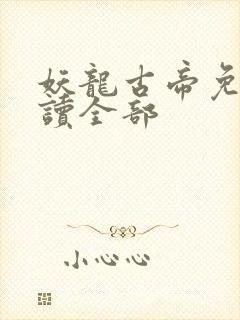 妖龍古帝免
讀全部
小心心